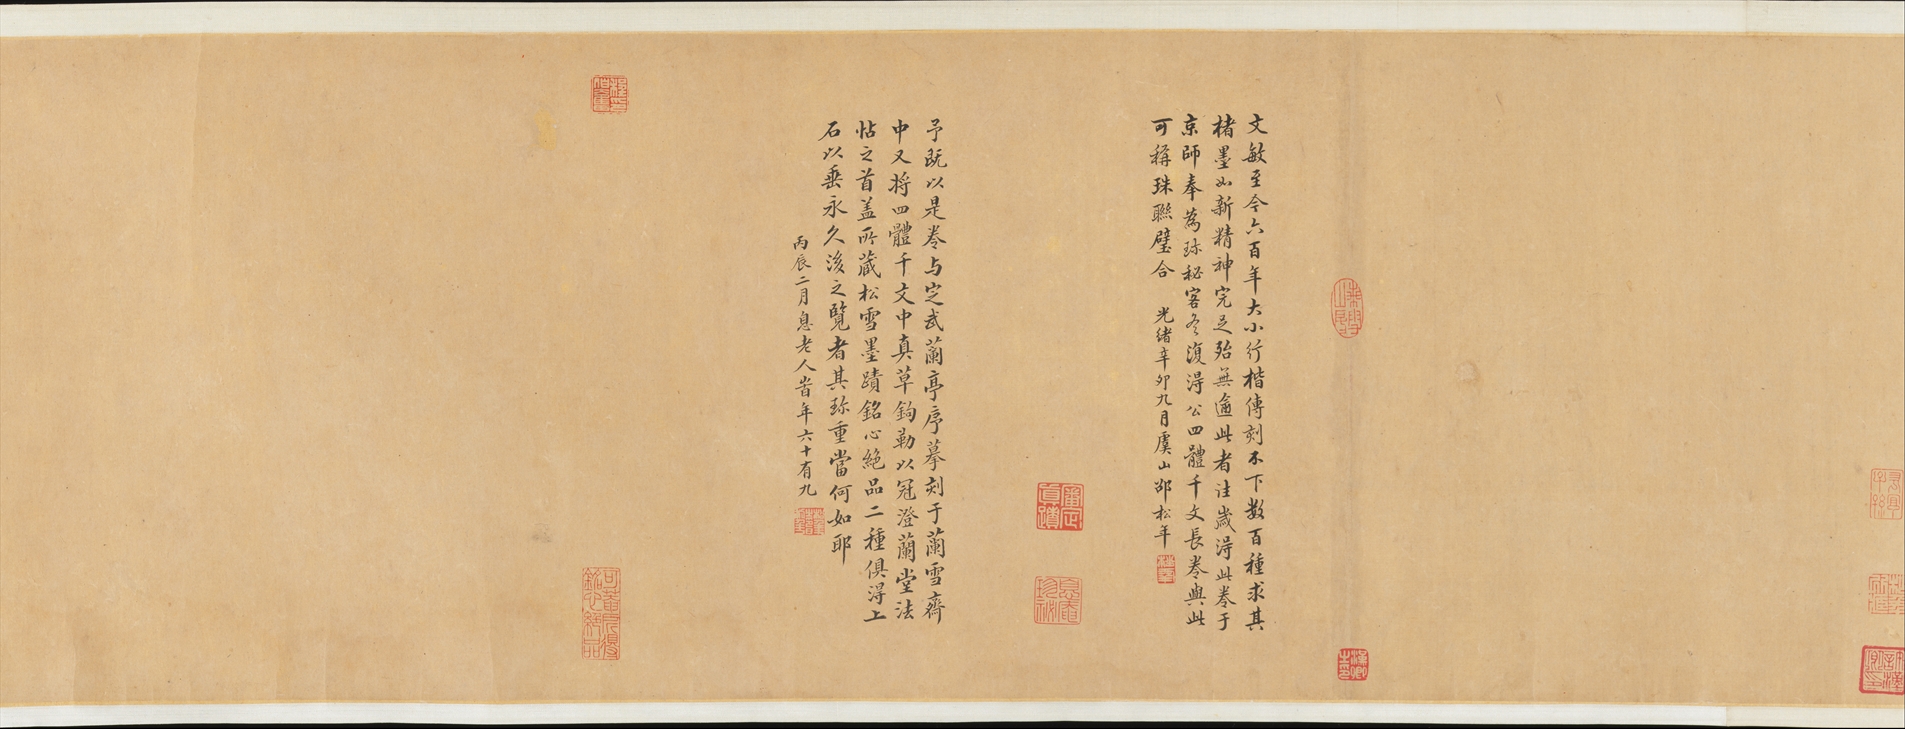 文敏至今六百年大小行楷傳刻不下数百種求其
楮墨如新精神完足殆無逾此者往歲淂此卷于
京師奉為珎秘客冬復淂公四體千文長卷與此
可稱珠聯璧合
光緒辛卯九月虞山邵松年
予既以是卷与定武蘭亭序摹刻于蘭雪齋
中又将四體千文中真草鉤勒以冠澄蘭堂法
帖之首盖所藏松雪墨蹟銘心絕品二種俱淂上
石以垂永久後之覽者其珎重當何如耶
丙辰二月息老人峕年六十有九
審定
真蹟
息盦
珍祕
銘心絕品